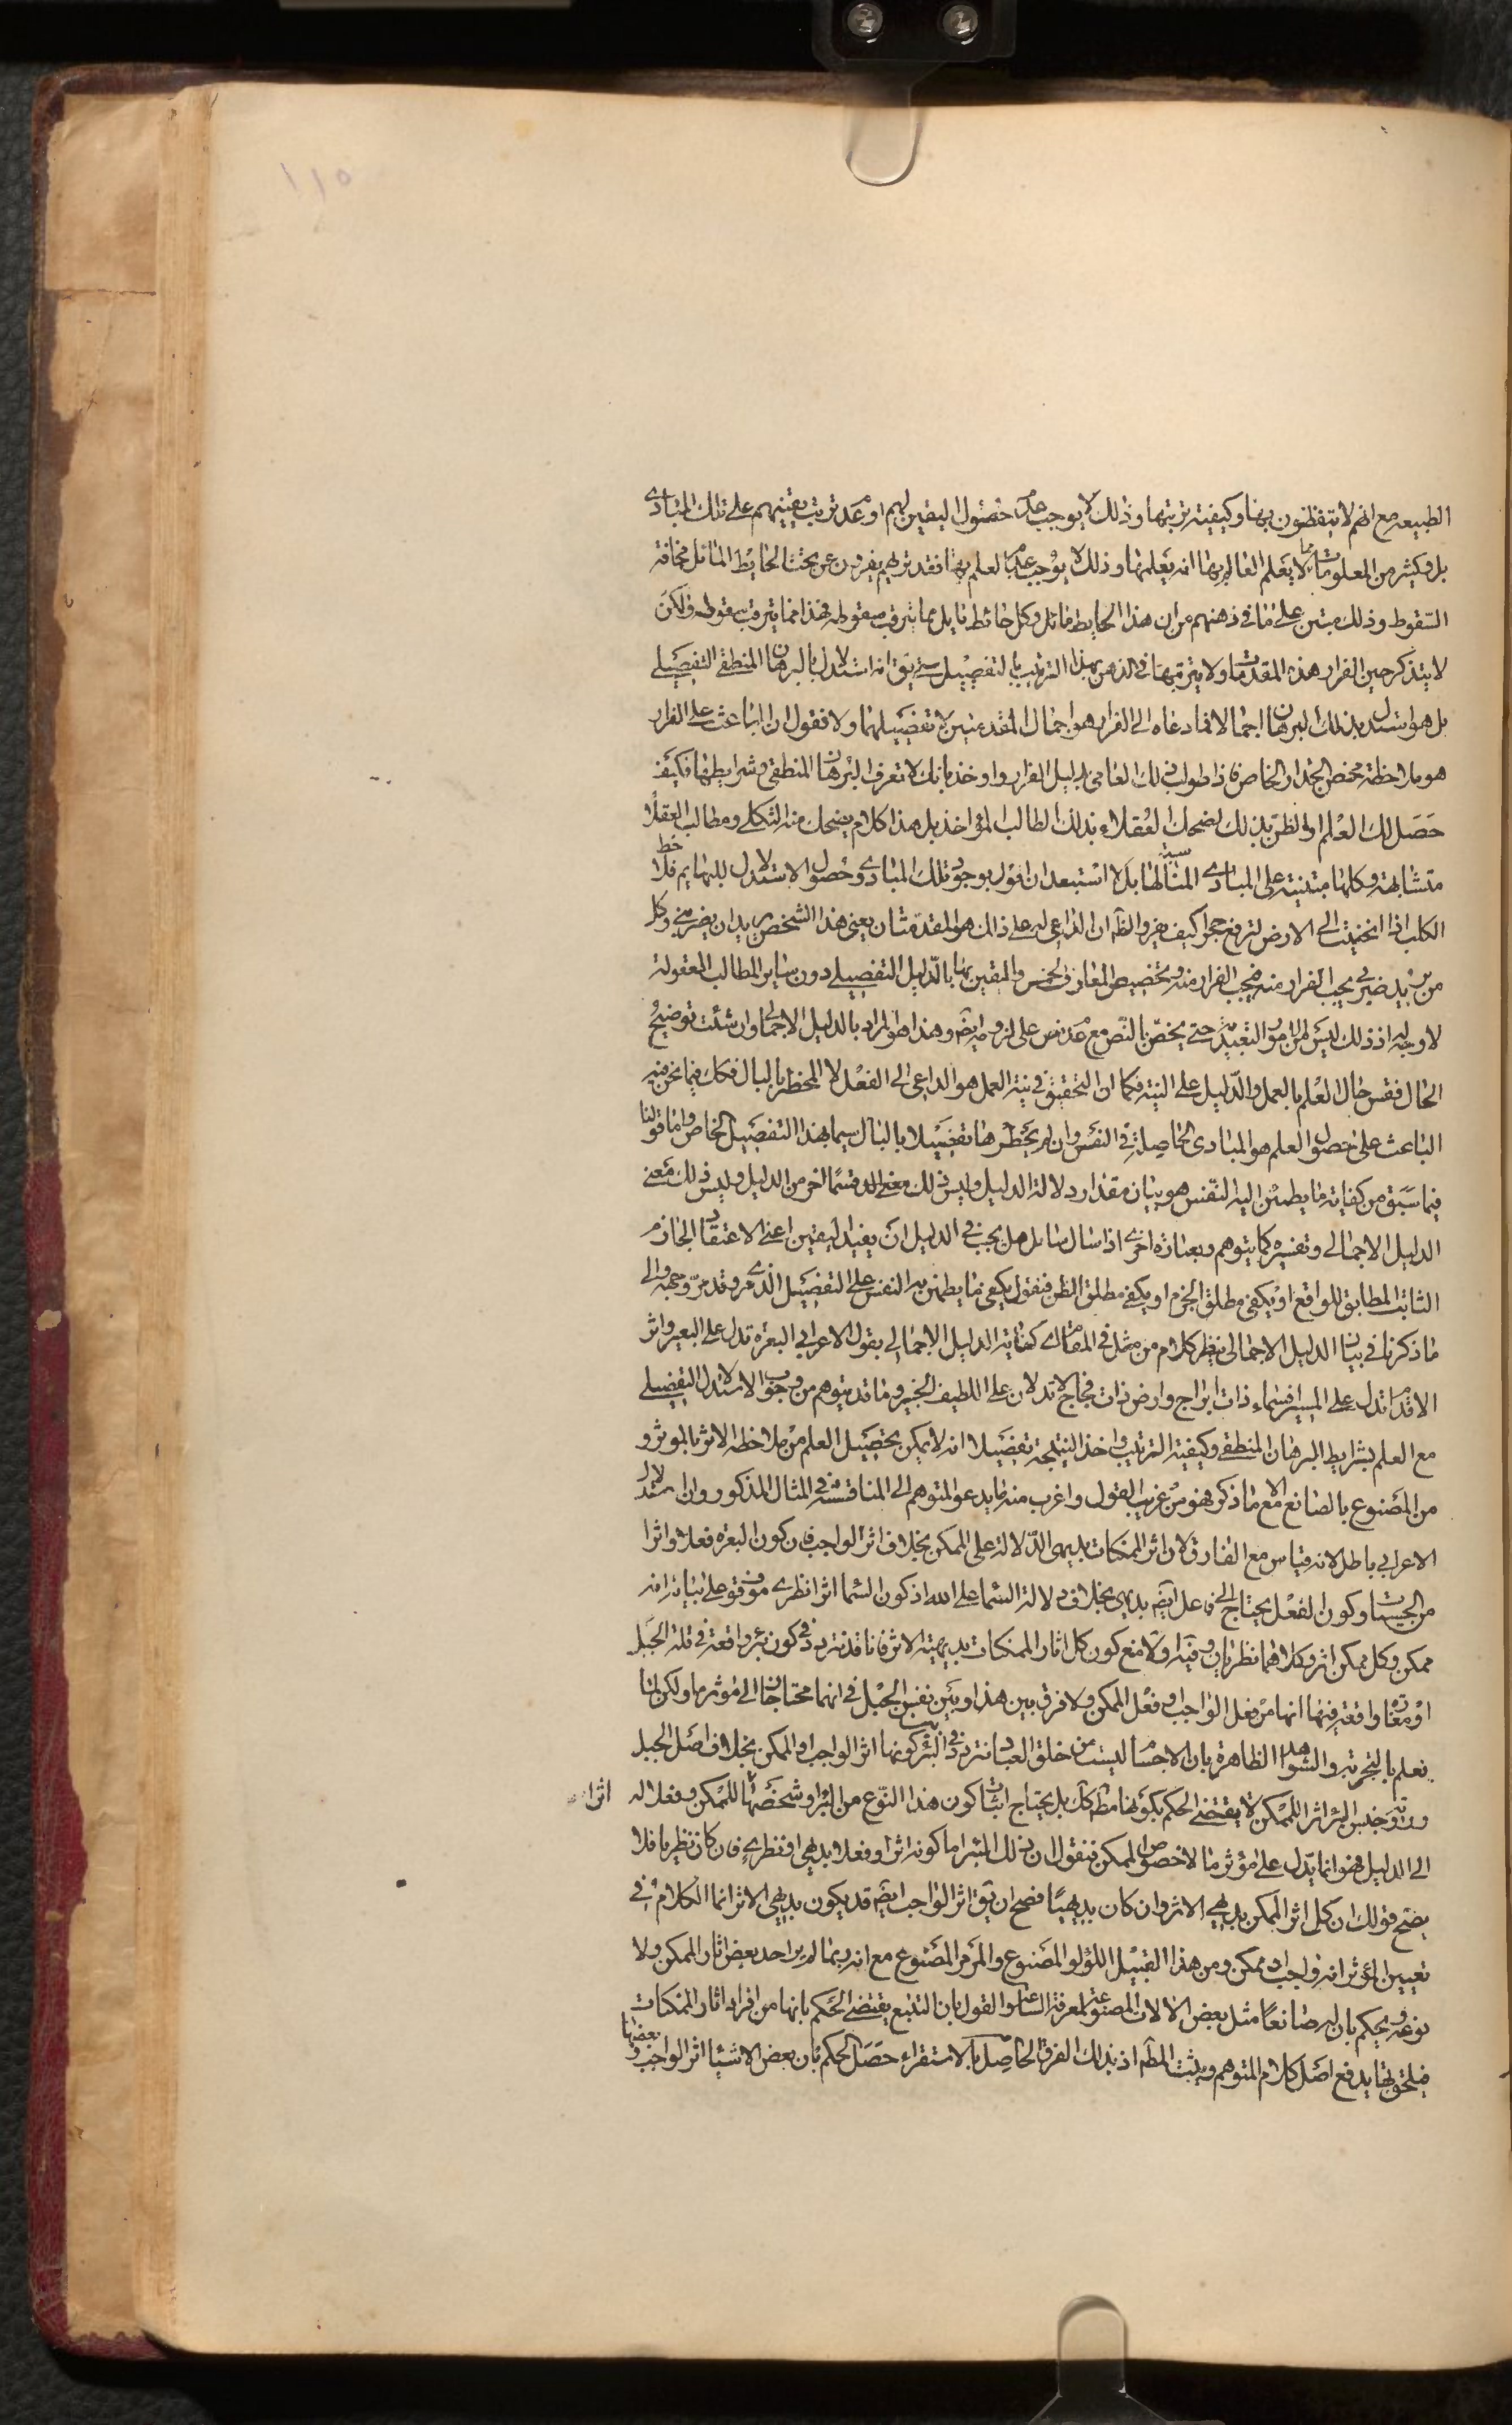 ١١٥
الطبيعه مع انهم لا يتفطنون بها وكيفية ترتيبها وذلك لا يوجب عدم حصول اليقين لهم او عدم ترتب يقينهم على تلك المبادى
بل وكثير من المعلومات مما لا يعلم العالم بها انه يعلمها وذلك لا يوجب عدم العلم بها فقد تريهم يفرون عن تحت الحايط المائل مخافة
السقوط وذلك مبتن على ما فى ذهنهم من ان هذا الحايط مائل وكل حائط مايل مما يترقب سقوطه فهذا مما يترقب سقوطه ولكن
لا يتذكر حين الفرار هذه المقدمات ولا يترتبها فى الذهن بهذا الترتيب بالتفصيل حتى يق انه استدلال بالبرهان المنطقى التفصيلى
بل هو استدل بذلك البرهان اجمالا فما دعاه الى الفرار هو اجمال المقدمتين لا تفصيلهما ولا نقول ان الباعث على الفرار
هو ملاحظة محض الجدار الخاص فاذا طولب ذلك العامى بدليل الفرار واوخذ بانك لا تعرف البرهان المنطقى وشرايطها فكيف
حصل لك العلم او الظن بذلك لضحك العقلاء بذلك الطالب المؤاخذ بل هذا كلام يضحك منه الثكلى ومطالب العقلا
متشابهة وكلها مبتنية على المبادى المناسبة لها بل لا استبعد ان اقول بوجود تلك المبادى وحصول الاستدلال للبهايم فلاحظ
الكلب اذا انحنيت الى الارض لترفع حجرا كيف يفر والظ ان الداعى له على ذلك هو المقدمتان يعنى هذا الشخص يريد ان يضربنى وكل
من يريد ضربى يجب الفرار منه فيجب الفرار منه وتخصيص المعارف الخمس واليقين بها بالدليل التفصيلى دون ساير المطالب المعقولة
لا وجه له اذ ذلك ليس من الامور التعبدية حتى يخص بالنص مع عدم نص على لزومه ايضا وهذا هو المراد بالدليل الاجمالى وان شئت توضيح
الحال فقس حال العلم بالعمل والدليل على النية فكما ان التحقيق فى نية العمل هو الداعى الى الفعل لا المخطر بالبال فكك فيما نحن فيه
الباعث على حصول العلم هو المبادى الحاصلة فى النفس وان لم يخطرها تفصيلا بالبال سيما بهذا التفصيل الخاص واما قولنا
فيما سبق من كفاية ما يطمئن اليه النفس هو بيان مقدار دلالة الدليل وليس ذلك معنى الدليل قسما اخر من الدليل وليس ذلك معنى
الدليل الاجمالى وتفسيره كما يتوهم وبعبارة اخرى اذا سال سائل هل يجب فى الدليل ان يفيد اليقين اعنى الاعتقاد الجازم
الثابت المطابق للواقع او يكفى مطلق الجزم او يكفى مطلق الظن فنقول يكفى ما يطمئن به النفس على التفصيل الذى مر وقد مر وجهه والى
ما ذكرنا فى بيان الدليل الاجمالى ينظر كلام من مثل فى المقام اى كفاية الدليل الاجمالى بقول الاعرابى البعرة تدل على البعير واثر
الاقدام تدل على المسير افسماء ذات ابراج وارض ذات فجاج لا تدلان على اللطيف الخبير وما قد يتوهم من وجوب الاستدلال التفصيلى
مع العلم بشرايط البرهان المنطقى وكيفية الترتيب واخذ النتيجة تفصيلا انه لا يمكن تحصيل العلم من ملاحظة الاثر بالموثر و
من المصنوع بالصانع الا مع ما ذكر فهو من غريب القول واغرب منه ما يدعو المتوهم الى المناقشة فى المثال المذكور وان استدلال
الاعرابى باطل لانه قياس مع الفارق لان اثر الممكنات بديهى الدلالة على الممكن بخلاف اثر الواجب فان كون البعرة فعلا واثرا
من الحسيات وكون الفعل يحتاج الى فاعل ايضا بديهى بخلاف دلالة السماء على الله اذ كون السماء اثرا نظرى موقوف على اثبات انه
ممكن وكل ممكن اثر وكلاهما نظريان وفيه اولا منع كون كل اثار الممكنات بديهية الاثر فانا قد نتردد فى كون بئر واقعة فى قلة الجبل
او مغارة واقعة فيها انها من فعل الواجب او فعل الممكن ولا فرق بين هذا وبين نفس الجبل فى انهما محتاجان الى مؤثر ما ولكن انا
نعلم بالتجربة والشواهد الظاهرة بان الاجسام ليست من خلق العباد نتردد فى البئر كونها اثر الواجب او الممكن بخلاف اصل الجبل
ورؤية جنس البئر اثرا للممكن لا يقتضى الحكم بكونها مظ كك بل يحتاج اثبات كون هذا النوع من البئر او شخصها للممكن وفعلا له اثرا
الى الدليل فهو انما يدل على مؤثر ما لا خصوص الممكن فنقول ان ذلك البئر اما كونه اثرا وفعلا بديهى او نظرى فان كان نظريا فلا
يصح قولك ان كل اثر الممكن بديهى الاثر وان كان بديهيا فصح ان يق اثر الواجب ايضا قد يكون بديهى الاثر انما الكلام فى
تعيين المؤثر انه واجب او ممكن ومن هذا القبيل اللؤلؤ المصنوع والمرمر المصنوع مع انه ربما لم ير احد بعض اثار الممكن ولا
نوعه ويحكم بان له صانعا مثل بعض الالات المصنوعة لمعرفة الساعات والقول بان التتبع يقتضى الحكم بانها من افراد اثار الممكنات
فيلحق بها يدفع اصل كلام المتوهم ويثبت المظ اذ بذلك الفرق الحاصل بالاستقراء حصل الحكم بان بعض الاشياء اثر الواجب وبعضها